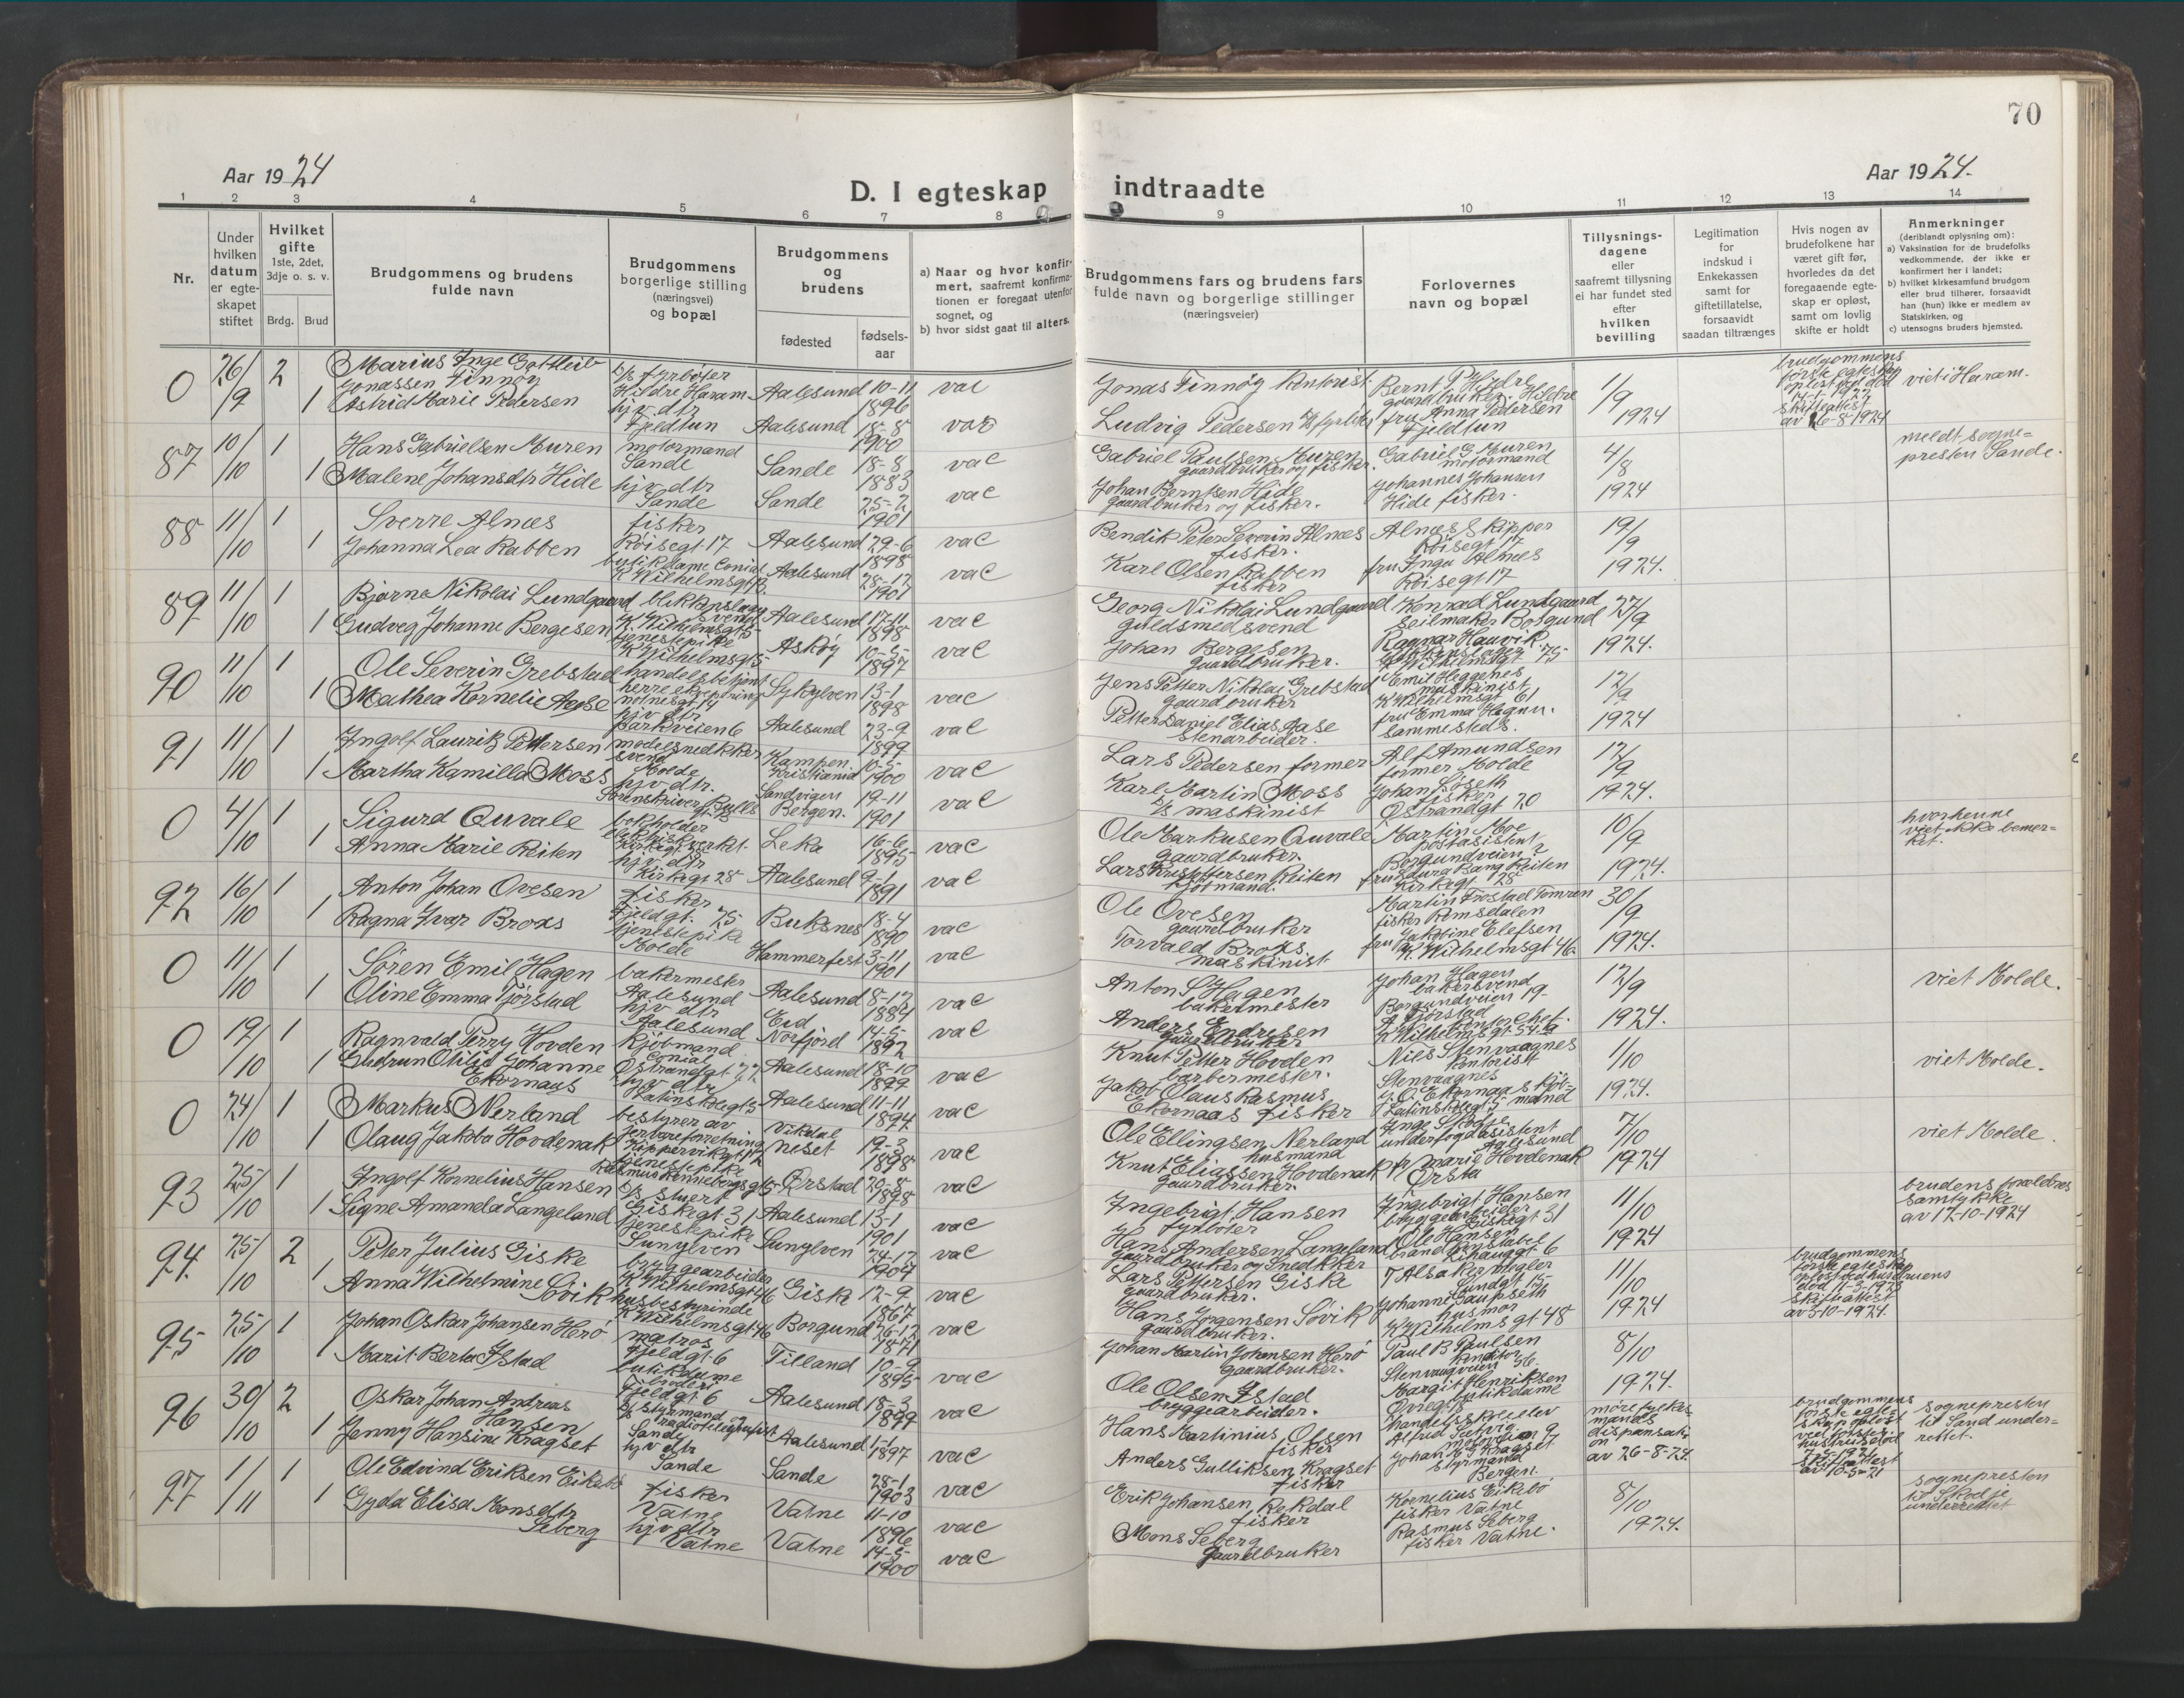 70
Aar 1924
Aar 1924.
D. I egteskap indtraadte
1 2 3 4 5 6 7 8 9 10 11 12 13 14
Nr.
Under hvilken datum er egteskapet stiftet
Hvilket gifte
1ste, 2det, 3dje o. s. v.
Brdg. Brud
Brudgommens og brudens
fulde navn
Brudgommens
borgerlige stilling
(næringsvei)
og bopæl
Brudgommens
og
brudens
fødested
fødsels-
aar
a) Naar og hvor konfir-
mert, saafremt konfirma-
tionen er foregaat utenfor
sognet, og
b) hvor sidst gaat til alters.
Brudgommens fars og brudens fars
fulde navn og borgerlige stillinger
(næringsveier)
Forlovernes
navn og bopæl
Tillysnings-
dagene
eller
saafremt tillysning
ei har fundet sted
efter
hvilken
bevilling
Legitimation
for
indskud i
Enkekassen
samt for
giftetillatelse,
forsaavidt
saadan tiltrænges
Hvis nogen av
brudefolkene har
været gift før,
hvorledes da det
foregaaende egte-
skap er opløst,
samt om lovlig
skifte er holdt
Anmerkninger
(deriblandt oplysning om):
a) Vaksination for de brudefolks
vedkommende, der ikke er
konfirmert her i landet;
b) hvilket kirkesamfund brudgom
eller brud tilhører, forsaavidt
han (hun) ikke er medlem av
Statskirken, og
c) utensogns bruders hjemsted.
0 26/9 2 Marius Inge Gottleib
Jonassen Finnøy
Hildre Haram Aalesund 10-11 1896 vac
Jonas Finnøy kontorist Bernt P. Hildre gaardbruker Hildre 1/9 1924
brudgommens første egteskap opløst ved død 14-1-1922 skifteattest av 6-8-1924
viet i Haram.
1 Astrid Marie Pedersen hjv. dtr Fjeldtun Aalesund 18-8 1900 vac
Ludvig Pedersen fru Anna Pedersen Fjeldtun
87 10/10 1 Hans Gabrielsen Muren motormand Sande Sande 18-8 1883 vac
Gabriel Paulsen Muren gaardbruker og fisker. Gabriel G. Muren motormand 4/8 1924
meldt sogne-
presten Sande.
1 Malene Johansdtr Hide hjv. dtr Sande Sande 25-2 1901 vac
Johan Berntsen Hide gaardbruker og fisker. Johannes Johansen Hide fisker.
88 11/10 1 Sverre Alnæs fisker Røisegt. 17 Aalesund 29-6 1898 vac
Bendik Peter Severin Alnæs fisker. Alnæs skipper Røisegt 17 19/9 1924.
1 Johanna Lea Rabben K Wilhelmsgt Aalesund 28-12 1901 vac
Karl Olsen Rabben fisker fru Inga Alnæs Røisegt 17
89 11/10 1 Bjarne Nikolai Lundgaard blikkenslager svend Aalesund 17-11 1898 vac
Georg Nikolai Lundgaard guldsmedsvend Konrad Lundgaard seilmaker Borgund 27/9 1924.
1 Gudveg Johanne Bergesen tjenestepike K Wilhelmsgt 5 Askøy 10-5 1897 vac
Johan Bergesen gaardbruker. Ragnar Hauvik blikkenslager K Wilhelmsgt 75
90 11/10 1 Ole Severin Grebstad handelsbetjent herreekvipering notenesgt 14 Sykylven 13-1 1898 vac
Jens Petter Nikolai Grebstad gaardbruker Emil Heggenes maskinist K Wilhelmsgt 61 12/9 1924
1 Mathea Kornelie Aase hjv dtr Parkveien 6 Aalesund 23-9 1899 vac
Petter Daniel Elias Aase stenarbeider. fru Emma sammesteds.
91 11/10 1 Ingolf Lauritz Pettersen modelsnedkker svend Molde Kampen. Kristiania 10-5 1900 vac
Lars Pedersen former Alf Amundsen former Molde 12/9 1924.
1 Martha Kamilla Moss hjv. dtr. Sorenskriver Bulls gt. Sandvigen Bergen. 19-11 1901 vac
Karl Martin Moss maskinist Johan Søseth fisker Østrandgt 20
0 4/10 1 Sigurd Quvale bokholder Leka 16-6 1895 vac
Ole Markusen Quvale gaardbruker. Martin Moe postasistent Borgundveien 10/9 1924.
hvorhenne
viet ikke bemer-
ket.
1 Anna Marie Reiten hjv. dtr Kirkegt 28 Aalesund 9-1 1891 vac
Lars Kristoffersen Reiten fru Laura Bang Reiten Kirkegt. 28
92 16/10 1 Anton Johan Ovesen fisker Fjeldgt. 75 Buksnes 18-4 1890 vac
Ole Ovesen gaardbruker fisker Romsdalen 30/9 1924.
1 Ragna Ivar Broxs tjenestepike Molde Hammerfest 3-11 1901 vac
Torvald Broxs maskinist fru Jakobine Elefsen K. Wilhelmsgt 46.
0 11/10 1 Søren Emil Hagen bakermester Aalesund Aalesund 8-12 1884 vac
Anton S Hagen bakermester Johan Hagen bakersvend Borgundveien 19. 12/9 1924.
viet Molde.
1 Oline Emma Tjørstad hjv dtr Aalesund Eid Norfjord 14-5 1892 vac
Anders Endresen gaardbruker A Tjørstad K Wilhelmsgt 54 a
0 19/10 1 Ragnvald Perry Hovden kjøbmand Østrandgt 22 Aalesund 18-10 1899 vac
Knut Petter Hovden barbermester. Nils Stenvaagnes kontorist Stenvaagnes 1/10 1924.
viet Molde.
1 Gudrun Otilie Johanne
Ekornaas hjv dtr Latinskolegt 5 Aalesund 11-11 1894 vac
Jakob Olaus Rasmus
Ekornaas fisker J. O. Ekornaas kjøb-
mand Latinskolegt 5
0 24/10 1 Markus Nerland bestyrer av jernvareforretning Kippervikgt 12 Vikdal neset 19-3 1898 vac
Ole Ellingsen Nerland husmand Inge underfogdasistent Aalesund 7/10 1924
viet Molde.
1 Olaug Jakoba Hovdenak tjenestepike Rasmus Rønnebergsgt 5 Ørstad 29-8 1898 vac
Knut Eliassen Hovdenak gaardbruker. Marie Hovdenak Ørsta
93 25/10 1 Ingolf Kornelius Hansen stuert Giskegt. 31 Aalesund 13-1 1901 vac
Ingebrigt Hansen fyrbøter Ingebrigt Hansen bryggearbeider Giskegt 31 11/10 1924
brudens forældres
samtykke
av 17-10-1924
1 Signe Amanda Langeland tjenestepike Sunylven Sunylven 24-12 1904 vac
Hans Andersen Langeland gaardbruker og snedkker Ole Hansen brandkonstabel Lihauggt. 6
94. 25/10 2 Peter Julius Giske bryggearbeider K Wilhelmsgt 46 Giske 12-9 1867 vac
Lars Pettersen Giske gaardbruker. T Alsaker megler Sundgt 15 11/10 1924
brudgommens første egteskap opløst ved hustruens død 11-3-1923 skifteattest av 3-10-1924.
1 Anna Wilhelmine Søvik husbestyrinde K Wilhelmsgt 46 Borgund 26-12 1871 vac
Hans Jørgensen Søvik gaardbruker. Johanne Gaupseth husmor K Wilhelmsgt 48
95 25/10 1 Johan Oskar Johansen Herø matros Fjeldgt. 6 Tilland 10-9 1895 vac
Johan Martin Johansen Herø gaardbruker. Paul B Paulsen konditor Stenvaagveien 56. 8/10 1924.
1 Marit Berta Istad butikdame Fjeldgt 6 Aalesund 18-3 1899 vac
Ole Olsen Istad bryggearbeider. Margit Henriksen butikdame
96 30/10 2 Oskar Johan Andreas
Hansen styrmand radiotelegrafist Sande Aalesund 1-1 1897 vac
Hans Martinius Olsen fisker handelsskoleelev Alfred Sætvig
møre fylkes-
mands
dispansati-
on
av 26-8-24.
brudgommens første egte-
skap opløst ved første hustrus død 7-8-1921 skifteattest av 10-5-21
sognepresten
til Sand under-
rettet.
1 Jenny Hansine Kragset hjv dtr Sande Sande 28-1 1903 vac
Anders Gulliksen Kragset fisker Johan M. G Kragset styrmand Bergen.
97 1/11 1 Ole Edvind Eriksen Eikebø fisker Vatne Vatne 11-10 1896 vac
Erik Johansen Rekdal fisker Kornelius Eikebø fisker Vatne 8/10 1924.
sognepresten
til Skodje
underrettet
1 Gyda Elisa Monsdtr
Seberg hjv dtr Vatne Vatne 14-5 1900 vac
Mons Seberg gaardbruker Rasmus Seberg fisker Vatne.